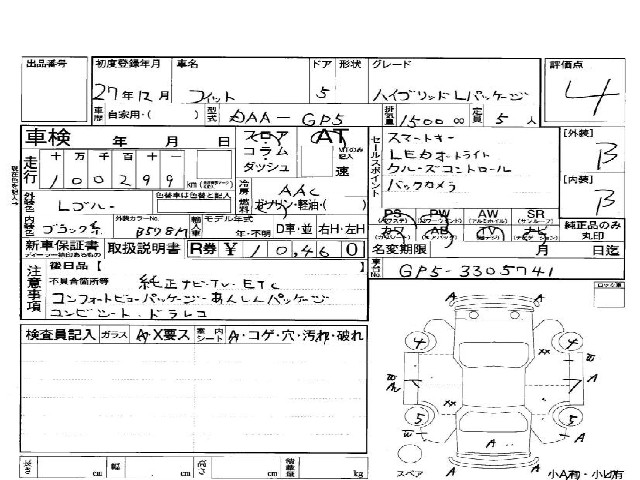 出品番号 初度登録年月 車名 ドア 形状 グレード 評価点
27年12月 フィット 5 ハイブリッドLパッケージ 4
車歴 自家用・( ) 型式 DAA-GP5 排気量 1500 cc 定員 5 人
車検 年 月 日 フロア コラム ダッシュ AT 速
走行 十 万 千 百 十 一
100299 km
セールスポイント
スマートキー
LEDオートライト
クルーズコントロール
バックカメラ
[外装] B
[内装] B
外装色 Lブルー 色替車は色替と記入 冷房 AAC
燃料 ガソリン・軽油・( )
内装色 ブラック系 外装カラーNo. B578M 輸入車 モデル年式 年・不明 D車・並 右H・左H
PS PW AW SR
カワ AB TV ナビ
純正品のみ丸印
新車保証書 取扱説明書 R券 ¥ 10,460
名変期限 月 日迄
車台No. GP5-3305741
注意事項
後日品【 】
不具合箇所等 純正ナビ・TV・ETC
コンフォートビューパッケージ・あんしんパッケージ
コンビシート・ドラレコ
ロック車
検査員記入 ガラス A・X要ス 室内シート A・コゲ・穴・汚れ・破れ
4 4
XX
W A
A 7 A
5 5
XX
W A A
A
スペア
長さ cm 幅 cm 高さ cm 積載量 kg
小A有・小U有